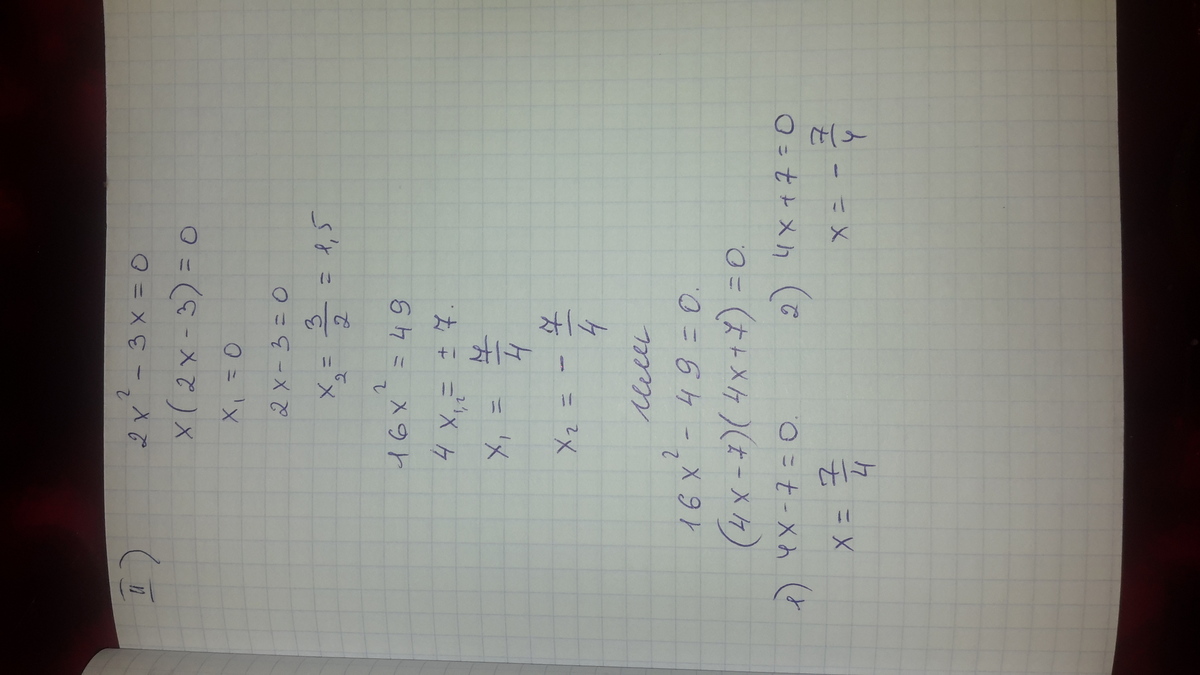 II) 2x² - 3x = 0
x(2x - 3) = 0
x₁ = 0
2x - 3 = 0
x₂ = 3/2 = 1,5
16x² = 49
4x₁,₂ = ± 7.
x₁ = 7/4
x₂ = - 7/4
или
16x² - 49 = 0.
(4x - 7)(4x + 7) = 0.
1) 4x - 7 = 0. 2) 4x + 7 = 0
x = 7/4 x = - 7/4